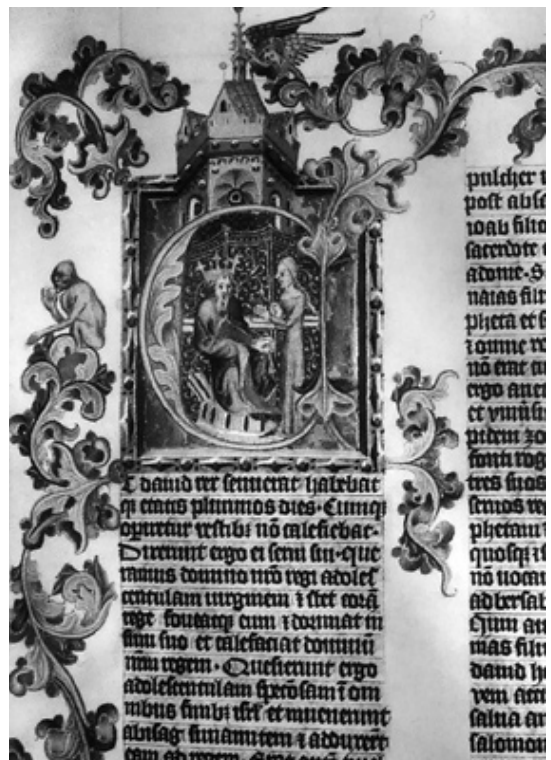 T dauid rex senuerat habebat
q; etatis plurimos dies. Cumq;
operiretur vestib; nō calefiebat.
Dixerunt ergo ei serui sui. que
ramus domino nr̄o regi adoles
centulam uirginem ⁊ stet corā
rege foueatq; eum ⁊ dormiat in
sinu suo et calefaciat dominū
nr̄m regem. Quesierunt ergo
adolescentulam speciosam ī om
nibus finib; isrl̄ et inuenerunt
abisag sunamitem ⁊ adduxerūt
eam ad regem.
pulcher
post absa
ioab filio
sacerdote
adonie. S
naias fili
pheta et
nō erat
ergo
et
pidem zo
fonti rog
tres suos
seruos re
phetam
quosq;
nō uoca
ad bersab
Quin au
mas filiu
dauid
salua an
salomon